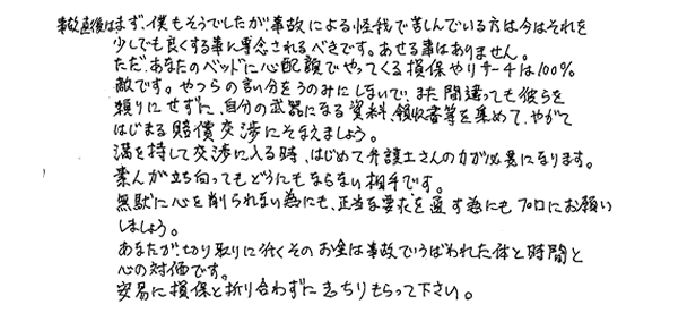 事故直後はまず、僕もそうでしたが、事故による怪我で苦しんでいる方は、今はそれを
少しでも良くする事に専念されるべきです。あせる事はありません。
ただ、あなたのベッドに心配顔でやってくる損保やリサーチは100%
敵です。やつらの言い分をうのみにしないで、また間違っても彼らを
頼りにせずに、自分の武器になる資料、領収書等を集めて、やがて
はじまる賠償交渉にそなえましょう。
満を持して交渉に入る時、はじめて弁護士さんの力が必要になります。
素人が立ち向ってもどうにもならない相手です。
無駄に心を削られない為にも、正当な要求を通す為にもプロにお願い
しましょう。
あなたが、切り取りに行くそのお金は事故でうばわれた体と時間と
心の対価です。
安易に損保と折り合わずにきっちりもらって下さい。